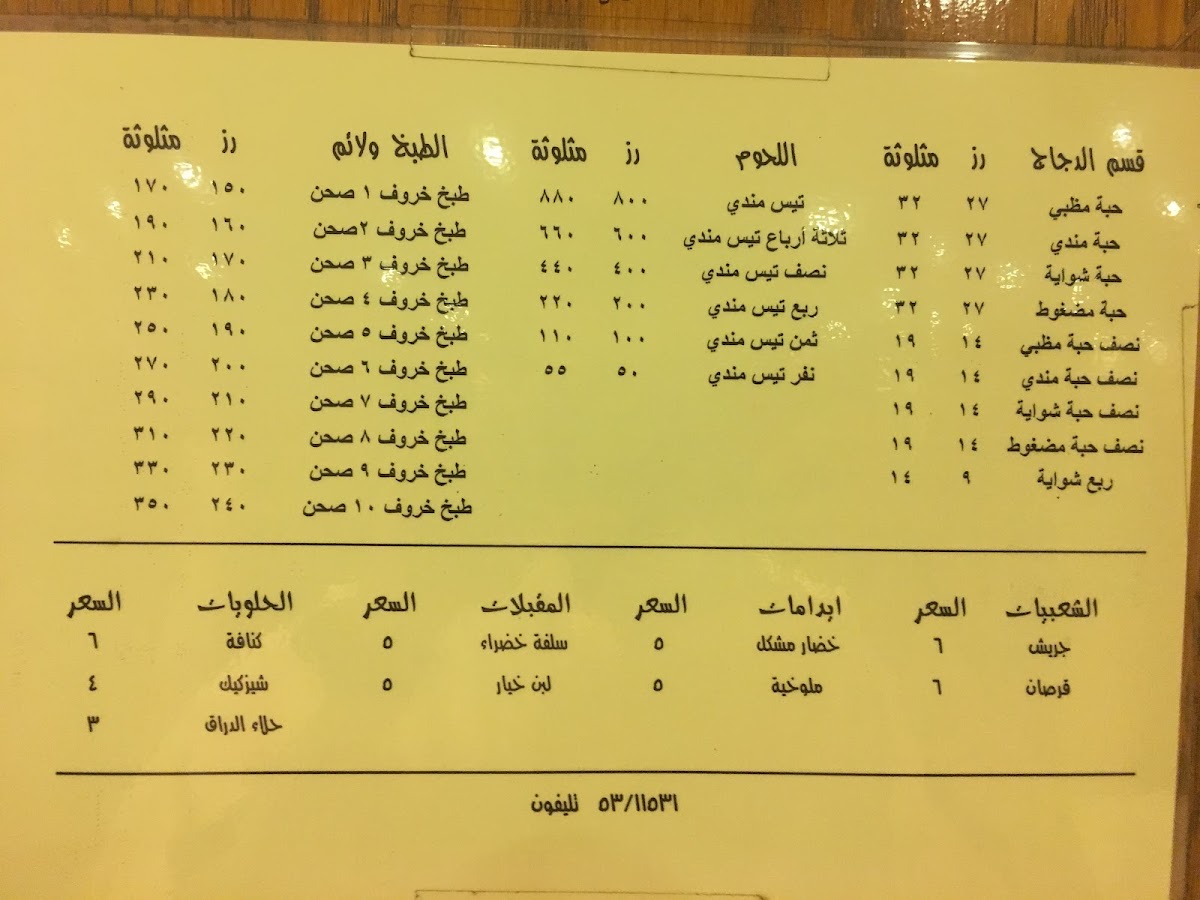 قسم الدجاج رز مثلوثة
حبة مظبي ٢٧ ٣٢
حبة مندي ٢٧ ٣٢
حبة شواية ٢٧ ٣٢
حبة مضغوط ٢٧ ٣٢
نصف حبة مظبي ١٤ ١٩
نصف حبة مندي ١٤ ١٩
نصف حبة شواية ١٤ ١٩
نصف حبة مضغوط ١٤ ١٩
ربع شواية ٩ ١٤
اللحوم رز مثلوثة
تيس مندي ٨٠٠ ٨٨٠
ثلاثة أرباع تيس مندي ٦٠٠ ٦٦٠
نصف تيس مندي ٤٠٠ ٤٤٠
ربع تيس مندي ٢٠٠ ٢٢٠
ثمن تيس مندي ١٠٠ ١١٠
نفر تيس مندي ٥٠ ٥٥
الطبخ ولائم رز مثلوثة
طبخ خروف ١ صحن ١٥٠ ١٧٠
طبخ خروف ٢صحن ١٦٠ ١٩٠
طبخ خروف ٣ صحن ١٧٠ ٢١٠
طبخ خروف ٤ صحن ١٨٠ ٢٣٠
طبخ خروف ٥ صحن ١٩٠ ٢٥٠
طبخ خروف ٦ صحن ٢٠٠ ٢٧٠
طبخ خروف ٧ صحن ٢١٠ ٢٩٠
طبخ خروف ٨ صحن ٢٢٠ ٣١٠
طبخ خروف ٩ صحن ٢٣٠ ٣٣٠
طبخ خروف ١٠ صحن ٢٤٠ ٣٥٠
الشعبيات السعر
جريش ٦
قرصان ٦
ايدامات السعر
خضار مشكل ٥
ملوخية ٥
المقبلات السعر
سلفة خضراء ٥
لبن خيار ٥
الحلويات السعر
كنافة ٦
شيزكيك ٤
حلاء الدراق ٣
٥٣/١١٥٣١ تليفون